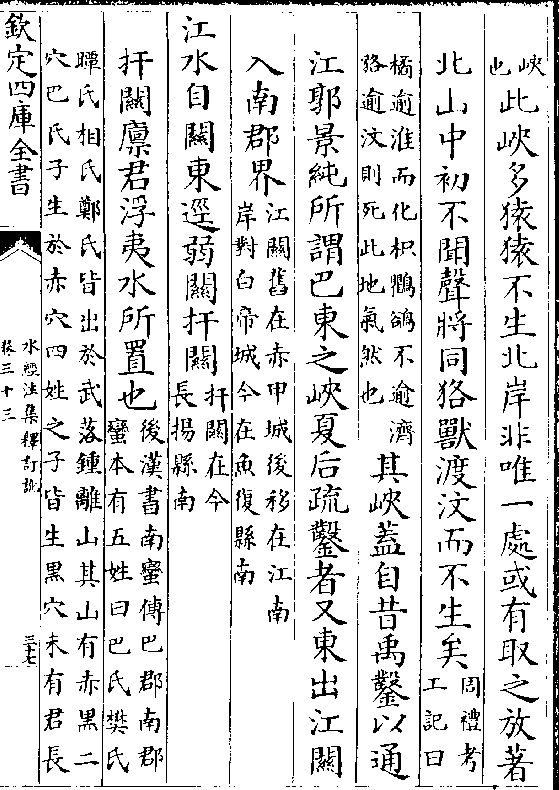 峽
也
此峽多猿猿不生北岸非唯一處或有取之放著
北山中初不聞聲將同狢獸渡汶而不生矣
周禮考
工記曰
橘逾淮而化枳鸜鵒不逾濟
狢逾汶則死此地氣然也
其峽葢自昔禹鑿以通
江郭景純所謂巴東之峽夏后疏鑿者又東出江關
入南郡界
江關舊在赤甲城後移在江南
岸對白帝城今在魚復縣南
江水自關東逕弱關扞關
扞關在今
長揚縣南
扞關廪君浮夷水所置也
後漢書南蠻傳巴郡南郡
蠻本有五姓曰巴氏樊氏
瞫氏相氏鄭氏皆出於武落鍾離山其山有赤黑二
穴巴氏子生於赤穴四姓之子皆生黑穴未有君長
欽定四庫全書
水經注集釋訂訛
卷三十三
三七